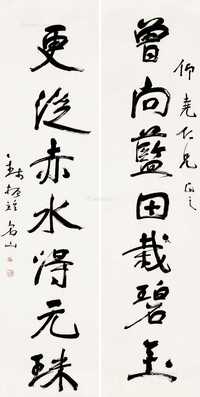 仰尧仁兄正之
曾向藍田栽碧玉
更從赤水得元珠
名山